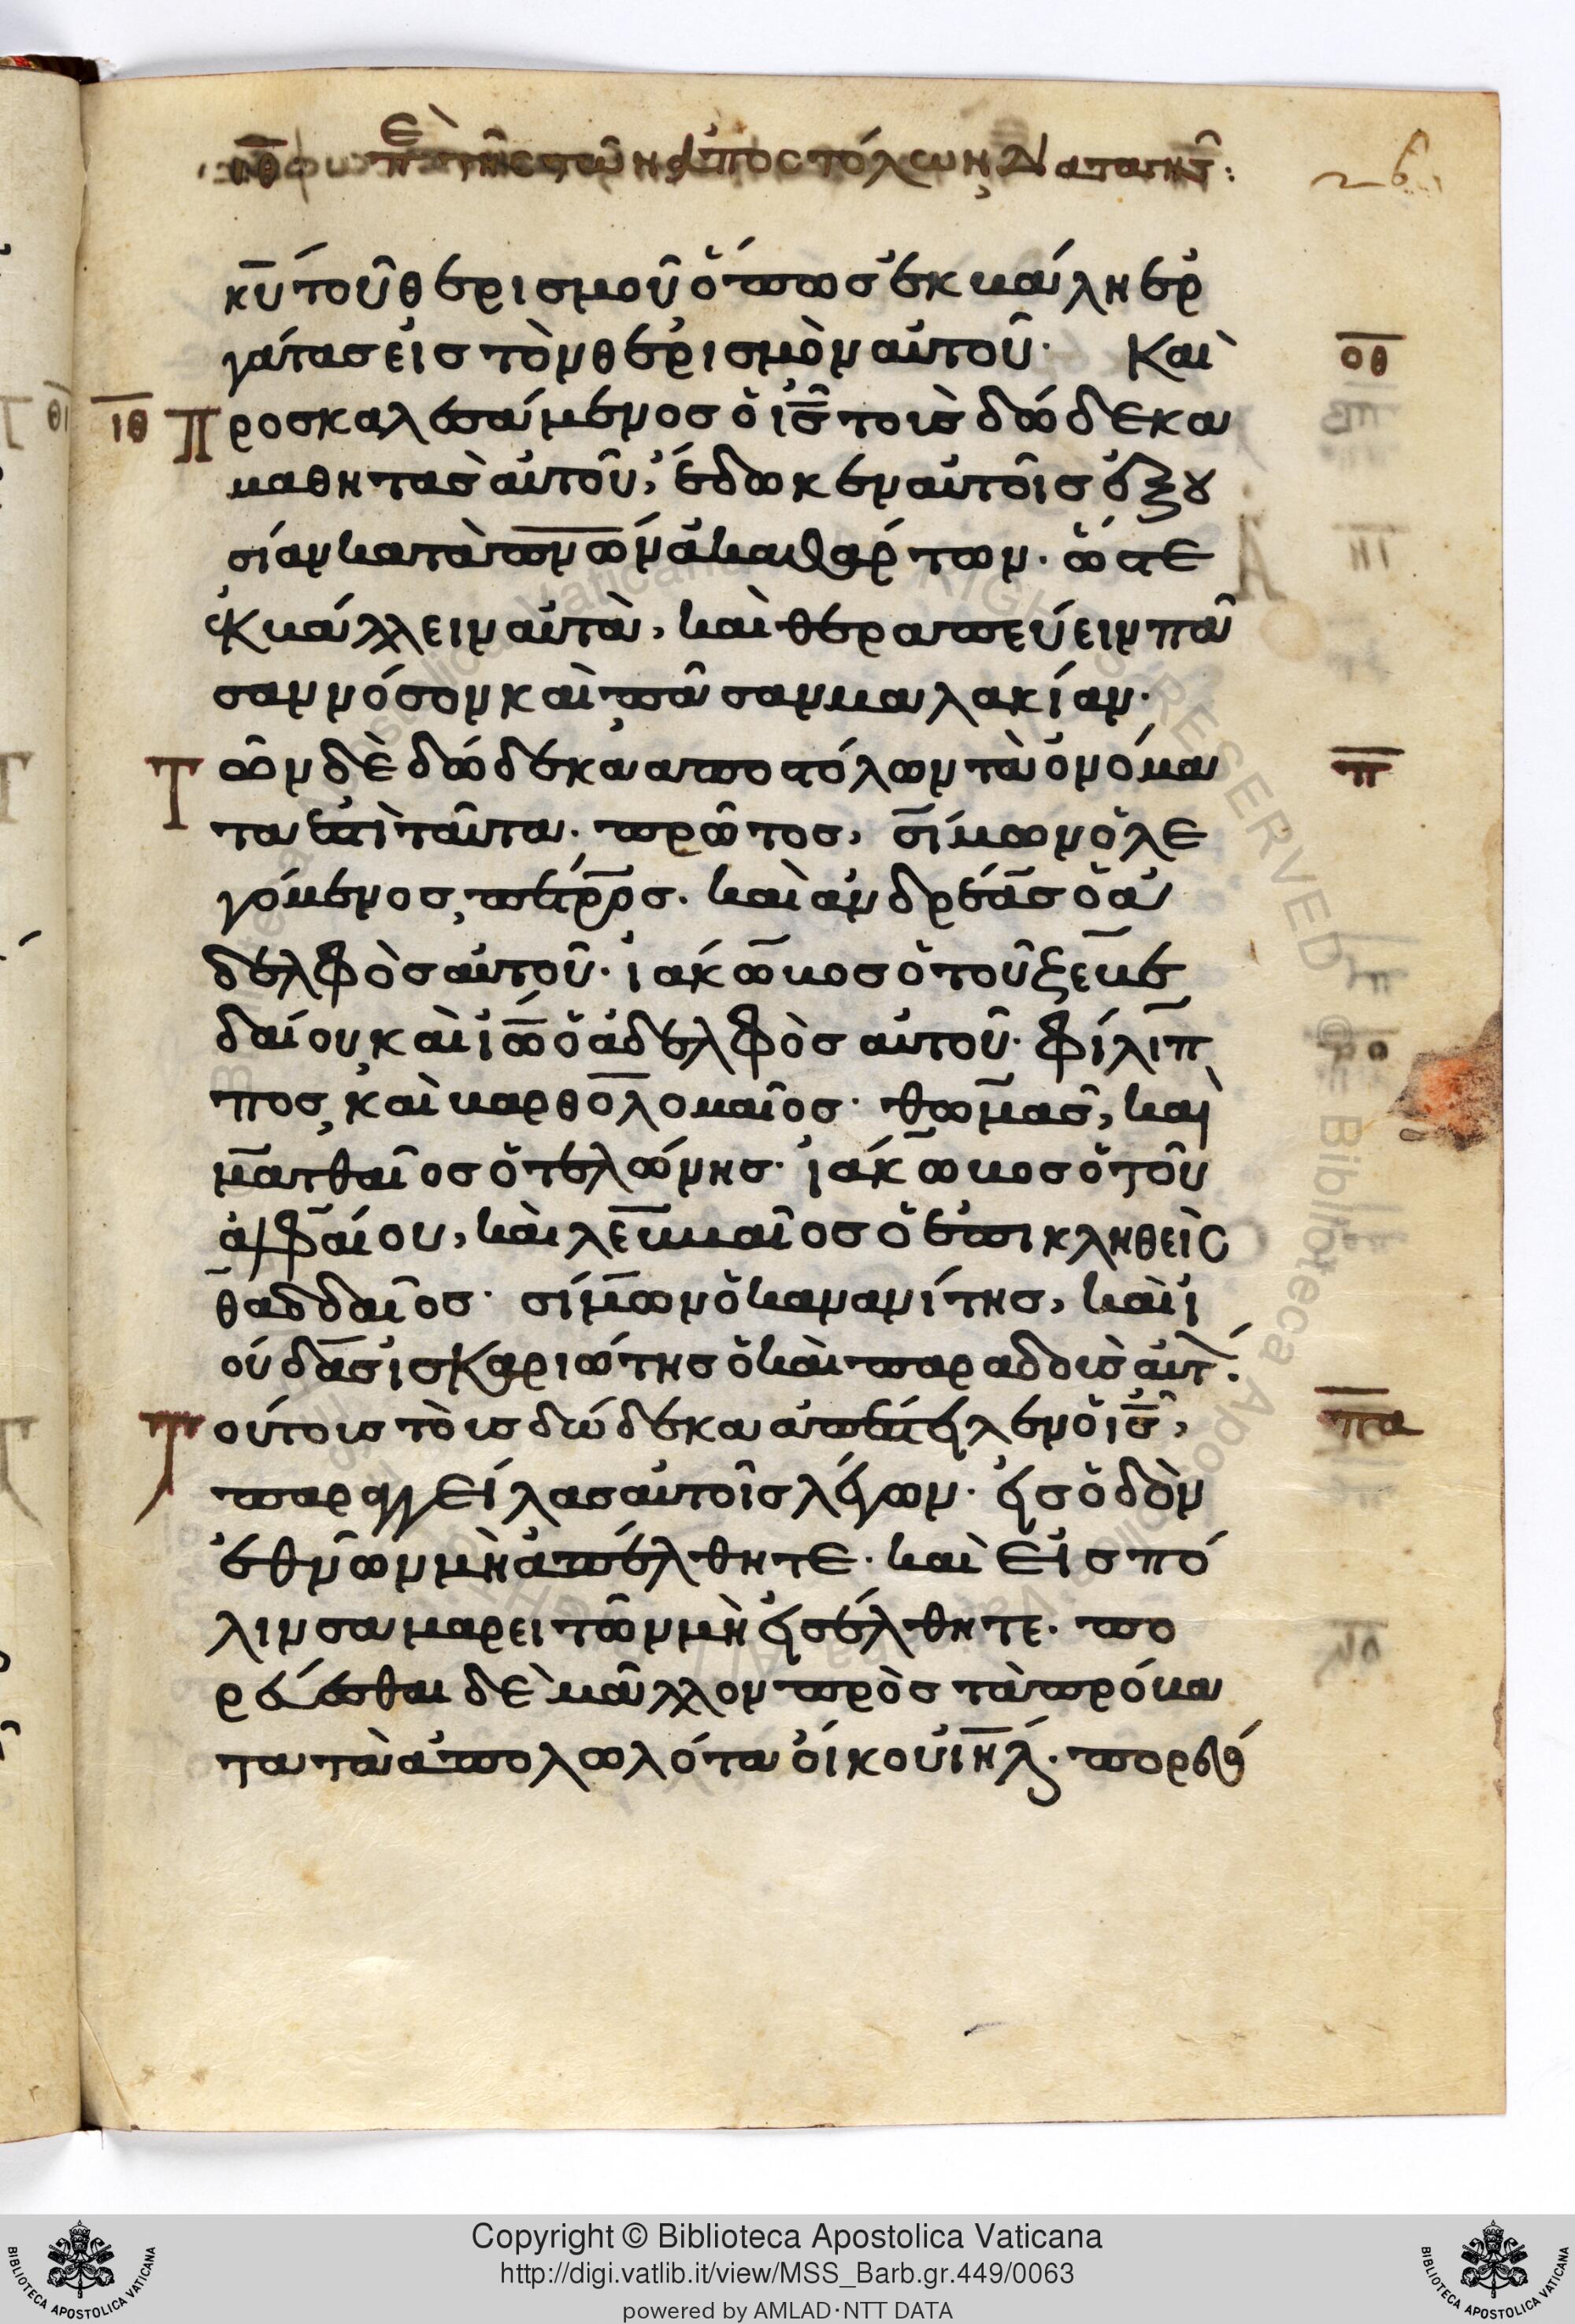 ιθ περὶ τῆς τῶν ἀποστόλων διαταγῆς:
26
κ̅υ̅ τοῦ θερισμοῦ ὅπως ἐκβάλη ἐρ
γάτας εἰς τὸν θερισμὸν αὐτοῦ· Καὶ
ο̅θ̅
ι̅θ̅
Προσκαλεσάμενος ὁ ι̅ς̅ τοὺς δώδεκα
μαθητὰς αὐτοῦ, ἔδωκεν αὐτοῖς ἐξου
σίαν κατὰ π̅ν̅ω̅ν ἀκαθάρτων· ὥστε
ἐκβάλλειν αὐτὰ, καὶ θεραπεύειν πᾶ
σαν νόσον καὶ πᾶσαν μαλακίαν·
Τῶν δὲ δώδεκα ἀποστόλων τὰ ὀνόμα
π̅
τα ἐστὶ ταῦτα· πρῶτος, σίμων ὁ λε
γόμενος πέτρος· καὶ ἀνδρέας ὁ ἀ
δελφὸς αὐτοῦ· ἰάκωβος ὁ τοῦ ζεβε
δαίου καὶ ἰ̅ω̅ ὁ ἀδελφὸς αὐτοῦ· φίλιπ
πος καὶ βαρθολομαῖος· θωμᾶς, καὶ
ματθαῖος ὁ τελώνης· ἰάκωβος ὁ τοῦ
ἀλφαίου, καὶ λεββαῖος ὁ ἐπικληθεὶς
θαδδαῖος· σίμων ὁ κανανίτης, καὶ ἰ
ούδας ἰσκαριώτης ὁ καὶ παραδοὺς αὐτ·
Τούτους τοὺς δώδεκα ἀπέστειλεν ὁ ι̅ς̅,
π̅α̅
παραγγείλας αὐτοῖς λέγων· εἰς ὁδὸν
ἐθνῶν μὴ ἀπέλθητε· καὶ εἰς πό
λιν σαμαρειτῶν μὴ εἰσέλθητε· πο
ρεύεσθαι δὲ μᾶλλον πρὸς τὰ πρόβα
τα τὰ ἀπολωλότα οἴκου ι̅η̅λ̅· πορευό
Copyright © Biblioteca Apostolica Vaticana
http://digi.vatlib.it/view/MSS_Barb.gr.449/0063
powered by AMLAD·NTT DATA
BIBLIOTECA APOSTOLICA VATICANA
BIBLIOTECA APOSTOLICA VATICANA